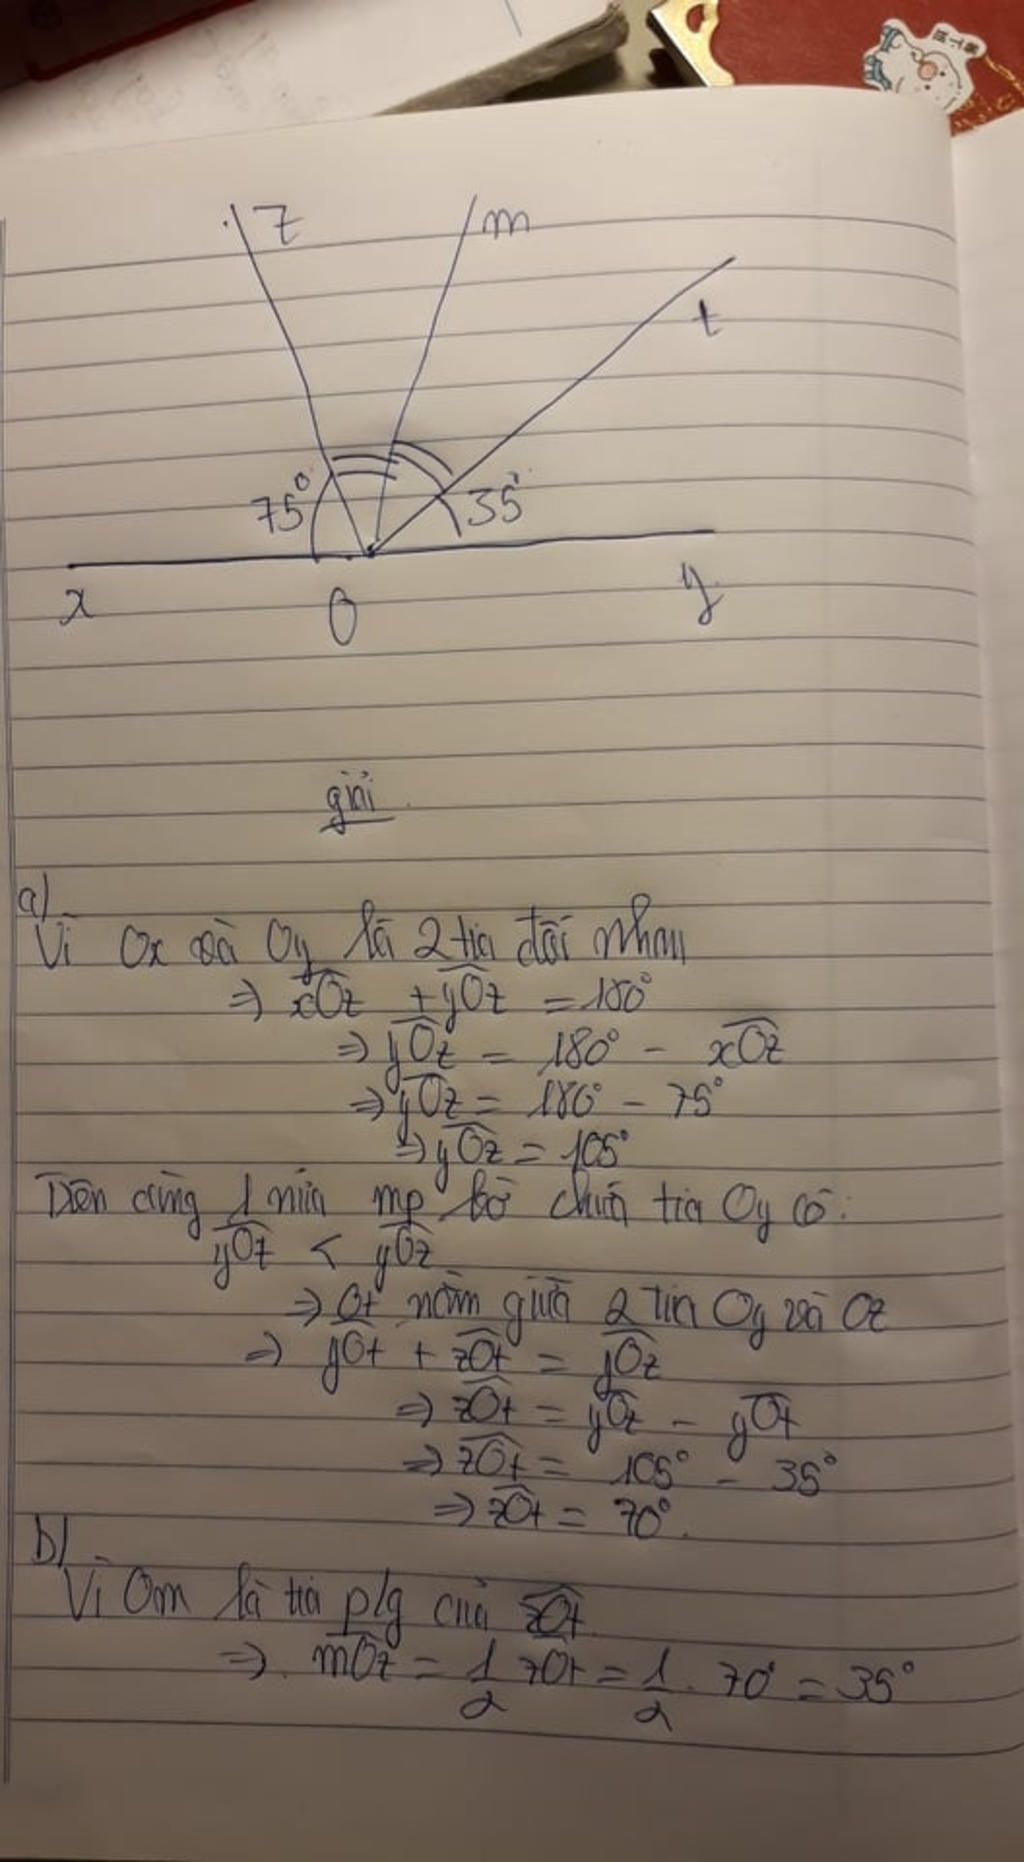 z
m
t
75°
35°
x
O
y
giải
a)
Vì Ox và Oy là 2 tia đối nhau
=> xOz + yOz = 180°
=> yOz = 180° - xOz
=> yOz = 180° - 75°
=> yOz = 105°
Trên cùng 1 nửa mp bờ chứa tia Oy có:
yOt < yOz
=> Ot nằm giữa 2 tia Oy và Oz
=> yOt + zOt = yOz
=> zOt = yOz - yOt
=> zOt = 105° - 35°
=> zOt = 70°.
b)
Vì Om là tia p/g của zOt
=> mOz = 1/2 zOt = 1/2 . 70° = 35°